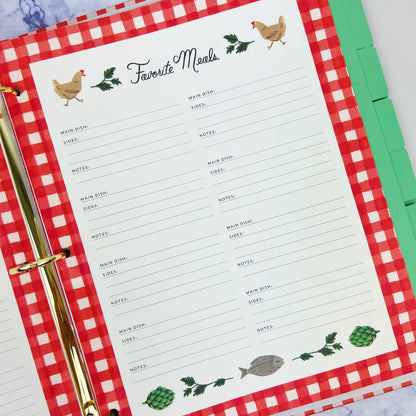 Favorite Meals
MAIN DISH:
SIDES:
NOTES:
MAIN DISH:
SIDES:
NOTES:
MAIN DISH:
SIDES:
NOTES:
MAIN DISH:
SIDES:
NOTES:
MAIN DISH:
SIDES:
NOTES:
MAIN DISH:
SIDES:
NOTES:
MAIN DISH:
SIDES:
NOTES:
MAIN DISH:
SIDES:
NOTES: